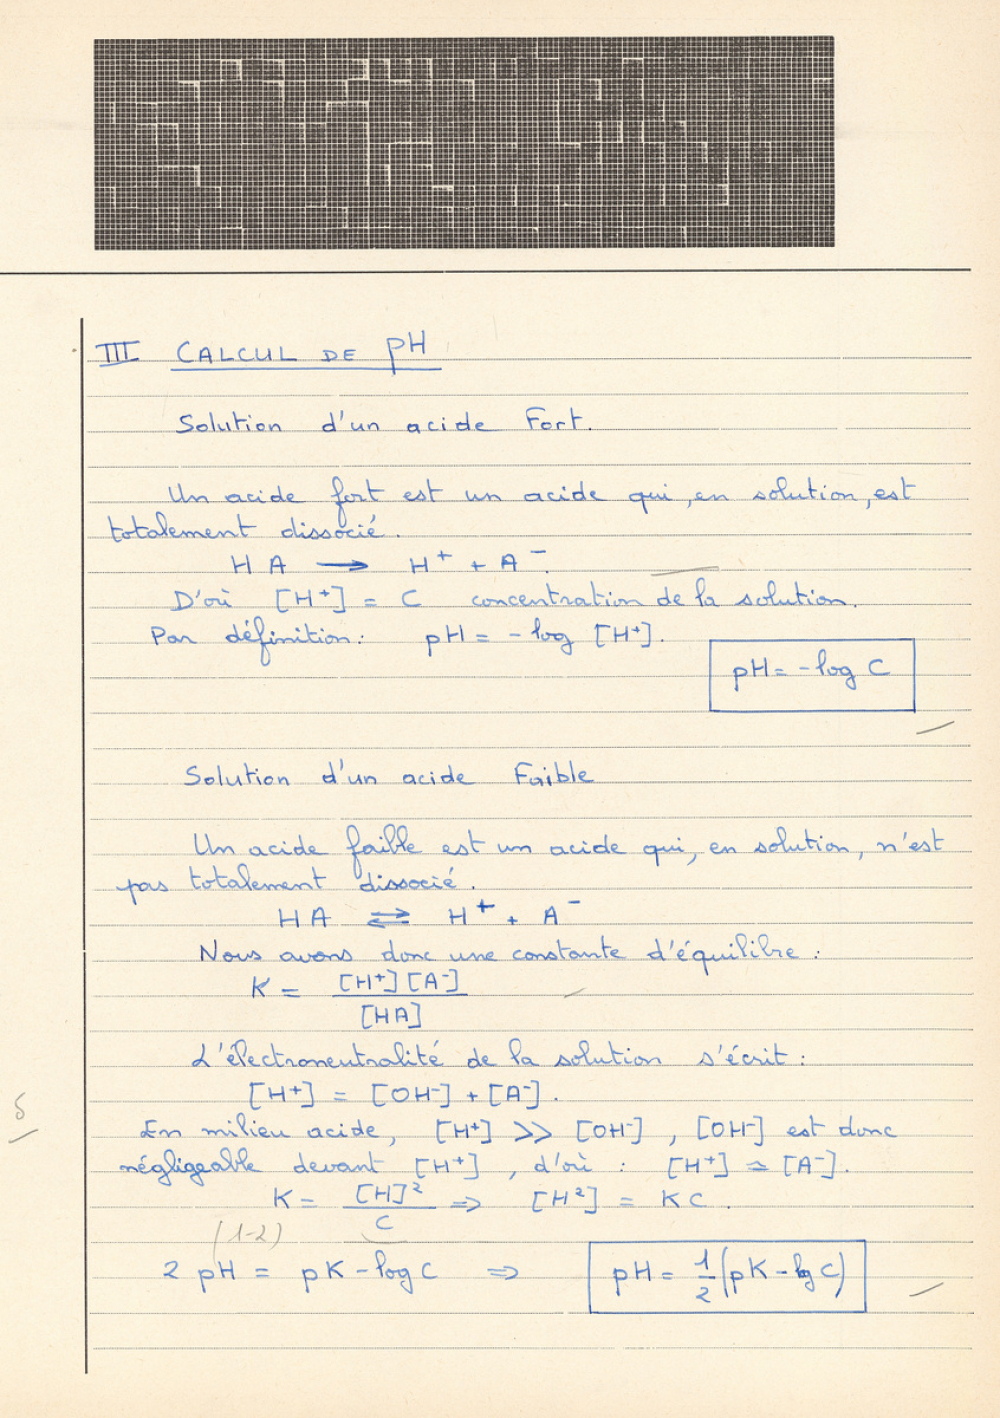 III CALCUL DE pH
Solution d'un acide Fort.
Un acide fort est un acide qui, en solution, est
totalement dissocié.
HA → H⁺ + A⁻.
D'où [H⁺] = C concentration de la solution.
Par définition: pH = - log [H⁺].
pH = - log C
Solution d'un acide Faible
Un acide faible est un acide qui, en solution, n'est
pas totalement dissocié.
HA ⇌ H⁺ + A⁻
Nous avons donc une constante d'équilibre :
K = [H⁺][A⁻]
[HA]
L'électroneutralité de la solution s'écrit :
[H⁺] = [OH⁻] + [A⁻].
5
En milieu acide, [H⁺] >> [OH⁻], [OH⁻] est donc
négligeable devant [H⁺], d'où : [H⁺] ≃ [A⁻].
K = [H]² ⇒ [H²] = KC.
C
(1-2)
2 pH = pK - log C ⇒ pH = 1/2 (pK - log C)